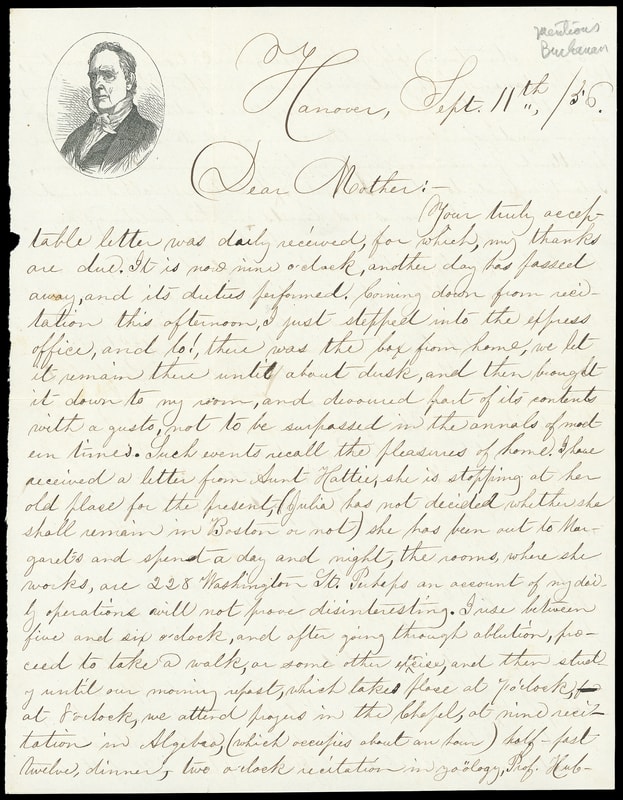 mentions
Buchanan
Hanover, Sept. 11th, /56.
Dear Mother:-
Your truly accep-
table letter was daily received, for which, my thanks
are due. It is now nine o'clock, another day has passed
away, and its duties performed. Coming down from reci-
tation this afternoon, I just stepped into the express
office, and lo!, there was the box from home, we let
it remain there until about dusk, and then brought
it down to my room, and devoured part of its contents
with a gusto, not to be surpassed in the annals of mod-
ern times. Such events recall the pleasures of home. I have
received a letter from Aunt Hattie, she is stopping at her
old plase for the present, (Julia has not decided whether she
shall remain in Boston or not) she has been out to Mar-
garet's and spend a day and night, the rooms, where she
works, are 228 Washington St. Perhaps an account of my dai-
ly operations will not prove disinteresting. I rise between
five and six o'clock, and after going through ablution, pro-
ceed to take a walk, or some other exercise, and then stud-
y until our morning repast, which takes plase at 7 o'clock,
at 8 o'clock, we attend prayers in the Chapel, at nine reci-
tation in Algebra, (which occupies about an hour) half-past
twelve, dinner, two o'clock recitation in zoology, Prof. Hub-